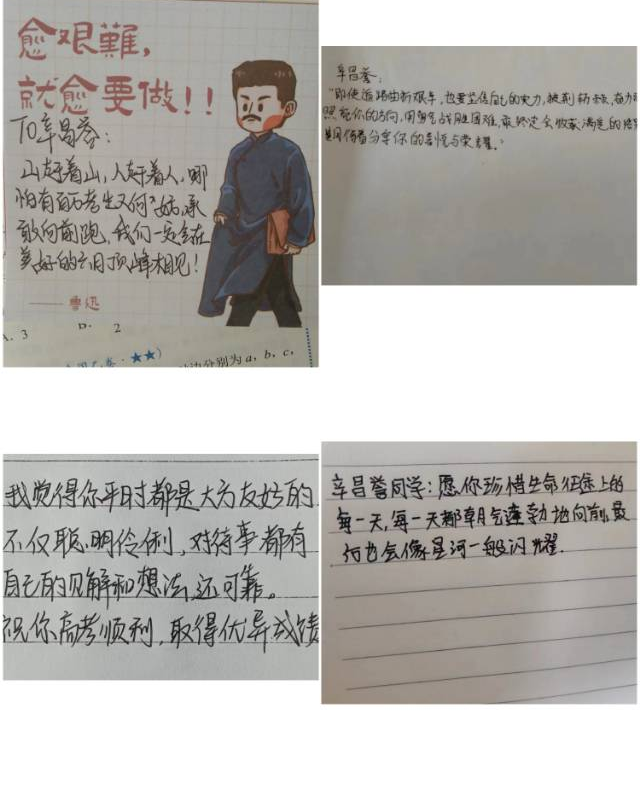 愈艰難，
就愈要做！！
TO辛昌誉：
山赶着山，人赶着人，哪
怕有百万考生又何妨，承
敢向前跑，我们一定会在
美好的六月顶峰相见！
——鲁迅
3 D. 2
★★）
边分别为a，b，c，
辛昌誉：
“即使道路曲折艰辛，也要坚信自己的实力，披荆斩棘，奋力
照亮你的方向，用勇气战胜困难，最终定会收获满意的
分享你的喜悦与荣耀。”
我觉得你平时都是大方友好的
不仅聪明伶俐，对待事都有
自己的见解和想法，还可靠。
祝你高考顺利，取得优异成绩
辛昌誉同学：愿你珍惜生命征途上的
每一天，每一天都朝气蓬勃地向前，最
后也会像星河一般闪耀.